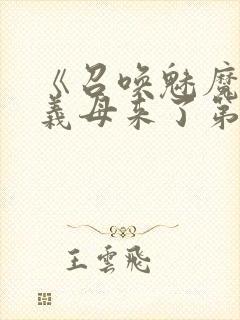 《召喚魅魔
義母来了第
王雲飛